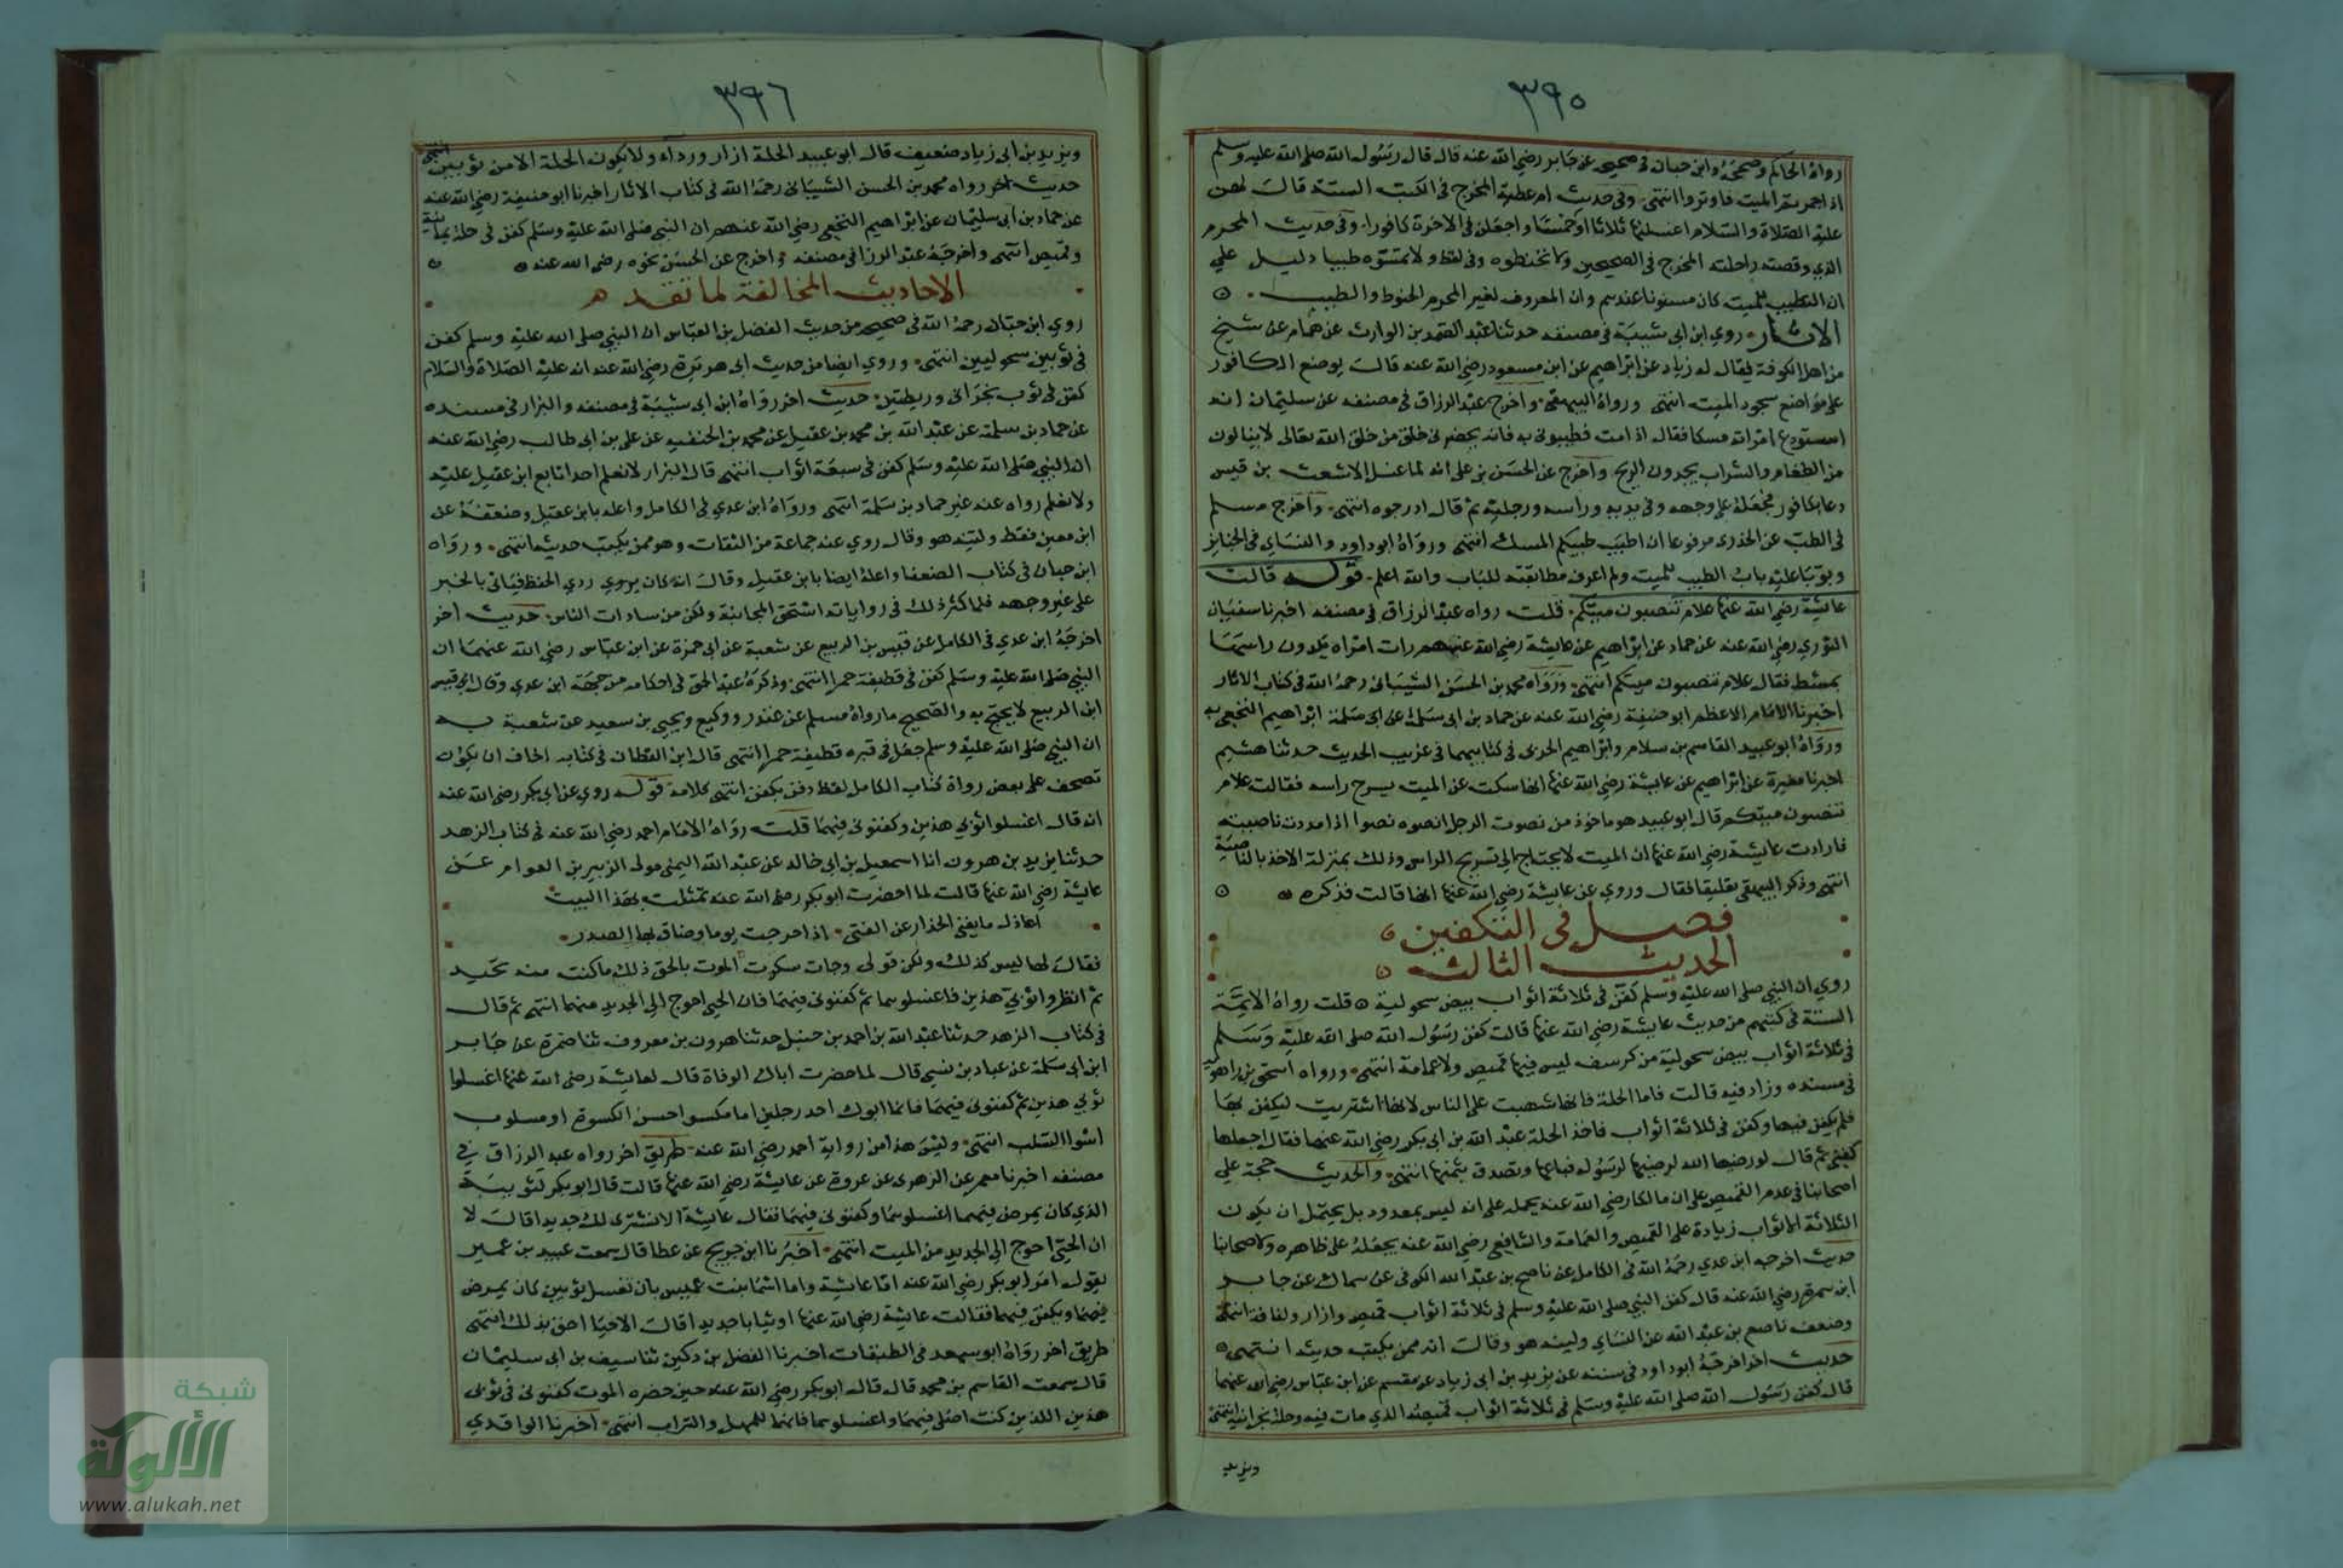 ٣٩٥
رواه الحاكم وصححه وابن حبان في صحيحه عن جابر رضي الله عنه قال قال رسول الله صلى الله عليه وسلم
اذا اجمرتم الميت فاوتروا انتهى وفي حديث ام عطية المخرج في الكتب الستة قال لهن
عليه الصلاة والسلام اغسلنها ثلاثا او خمسا واجعلن في الاخرة كافورا وفي حديث المحرم
الذي وقصته راحلته المخرج في الصحيحين ولا تحنطوه وفي لفظ ولا تمسوه طيبا دليل على
ان التطييب للميت كان مسنونا عندهم وان المعروف لغير المحرم الحنوط والطيب
الاثار روي ابن ابي شيبة في مصنفه حدثنا عبد الصمد بن الوارث عن همام عن شيخ
من اهل الكوفة يقال له زياد عن ابراهيم عن ابن مسعود رضي الله عنه قال يوضع الكافور
على مواضع سجود الميت انتهى ورواه البيهقي واخرج عبد الرزاق في مصنفه عن سليمان انه
استودع امراته مسكا فقال اذا مت فطيبوني به فانه يحضرني خلق من خلق الله تعالى لا ينالون
من الطعام والشراب يجدون الريح واخرج عن الحسن بن علي انه لما غسل الاشعث بن قيس
دعا بكافور فجعله على وجهه وفي يديه وراسه ورجليه ثم قال ادرجوه انتهى واخرج مسلم
في الطب عن الخدري مرفوعا ان اطيب طيبكم المسك انتهى ورواه ابو داود والنساي في الجنايز
وبوبا عليه باب الطيب للميت ولم اعرف مطابقته للباب والله اعلم قوله قالت
عايشة رضي الله عنها علام تنصون ميتكم قلت رواه عبد الرزاق في مصنفه اخبرنا سفيان
الثوري رضي الله عنه عن حماد عن ابراهيم عن عايشة رضي الله عنها رات امراة يكدون راسها
بمشط فقال علام تنصون ميتكم انتهى ورواه محمد بن الحسن الشيباني رحمه الله في كتاب الاثار
اخبرنا الامام الاعظم ابو حنيفة رضي الله عنه عن حماد بن ابي سلمة عن ابراهيم النخعي به
ورواه ابو عبيد القاسم بن سلام وابراهيم الحربي في كتابيهما في غريب الحديث حدثنا هشيم
اخبرنا مغيرة عن ابراهيم عن عايشة رضي الله عنها انها سكت عن الميت يسرح راسه فقالت علام
تنصون ميتكم قال ابو عبيد هو ماخوذ من نصوت الرجل انصوه نصوا اذا مددت ناصيته
فارادت عايشة رضي الله عنها ان الميت لا يحتاج الى تسريح الراس وذلك بمنزلة الاخذ بالناصية
انتهى وذكر البيهقي تعليقا فقال وروي عن عايشة رضي الله عنها انها قالت فذكره
فصل في التكفين
الحديث الثالث
روي ان النبي صلى الله عليه وسلم كفن في ثلاثة اثواب بيض سحولية قلت رواه الايمة
الستة في كتبهم من حديث عايشة رضي الله عنها قالت كفن رسول الله صلى الله عليه وسلم
في ثلاثة اثواب بيض سحولية من كرسف ليس فيها قميص ولا عمامة انتهى ورواه اسحق بن راهويه
في مسنده وزاد فيه قالت فاما الحلة فانها شبهت على الناس لانها اشتريت ليكفن بها
فلم يكفن فيها وكفن في ثلاثة اثواب فاخذ الحلة عبد الله بن ابي بكر رضي الله عنهما فقال اجعلها
كفني ثم قال لو رضيها الله لرضيها لرسوله فباعها وتصدق بثمنها انتهى والحديث حجة على
اصحابنا في عدم القميص على ان مالكا رضي الله عنه يحمله على انه ليس بمعدود بل يحتمل ان يكون
الثلاثة الاثواب زيادة على القميص والعمامة والشافعي رضي الله عنه يجعله على ظاهره ولاصحابنا
حديث اخرجه ابن عدي رحمه الله في الكامل عن ناصح بن عبد الله الكوفي عن سماك عن جابر
ابن سمرة رضي الله عنه قال كفن النبي صلى الله عليه وسلم في ثلاثة اثواب قميص وازار ولفافة انتهى
وضعف ناصح بن عبد الله عن النساي ولينه هو وقال انه ممن يكتب حديثه انتهى
حديث اخر اخرجه ابو داود في سننه عن يزيد بن ابي زياد عن مقسم عن ابن عباس رضي الله عنهما
قال كفن رسول الله صلى الله عليه وسلم في ثلاثة اثواب قميصه الذي مات فيه وحلة نجرانية انتهى
ويزيد
٣٩٦
ويزيد بن ابي زياد ضعيف قال ابو عبيد الحلة ازار ورداء ولا يكون الحلة الا من ثوبين انتهى
حديث اخر رواه محمد بن الحسن الشيباني رحمه الله في كتاب الاثار اخبرنا ابو حنيفة رضي الله عنه
عن حماد بن ابي سليمان عن ابراهيم النخعي رضي الله عنهم ان النبي صلى الله عليه وسلم كفن في حلة يمانية
وقميص انتهى واخرجه عبد الرزاق في مصنفه واخرج عن الحسن نحوه رضي الله عنه
الاحاديث المخالفة لما تقدم
روي ابن حبان رحمه الله في صحيحه من حديث الفضل بن العباس ان النبي صلى الله عليه وسلم كفن
في ثوبين سحوليين انتهى وروي ايضا من حديث ابي هريرة رضي الله عنه انه عليه الصلاة والسلام
كفن في ثوب نجراني وريطتين حديث اخر رواه ابن ابي شيبة في مصنفه والبزار في مسنده
عن حماد بن سلمة عن عبد الله بن محمد بن عقيل عن محمد بن الحنفيه عن علي بن ابي طالب رضي الله عنه
ان النبي صلى الله عليه وسلم كفن في سبعة اثواب انتهى قال البزار لا نعلم احدا تابع ابن عقيل عليه
ولا نعلم رواه عنه غير حماد بن سلمة انتهى ورواه ابن عدي في الكامل واعله بابن عقيل وضعفه عن
ابن معين فقط ولينه هو وقال روي عنه جماعة من الثقات وهو ممن يكتب حديثه انتهى ورواه
ابن حبان في كتاب الضعفا واعله ايضا بابن عقيل وقال انه كان يروي ردي الحفظ فياتي بالخبر
على غير وجهه فلما كثر ذلك في رواياته استحق المجانبة ولكن من سادات الناس حديث اخر
اخرجه ابن عدي في الكامل عن قيس بن الربيع عن شعبة عن ابي حمزة عن ابن عباس رضي الله عنهما ان
النبي صلى الله عليه وسلم كفن في قطيفة حمرا انتهى وذكره عبد الحق في احكامه من جهة ابن عدي وقال قيس
ابن الربيع لا يحتج به والصحيح ما رواه مسلم عن غندر ووكيع ويحيي بن سعيد عن شعبة به
ان النبي صلى الله عليه وسلم جعل في قبره قطيفة حمرا انتهى قال ابن القطان في كتابه اخاف ان يكون
تصحف على بعض رواة كتاب الكامل لفظ دفن بكفن انتهى كلامه قوله روي عن ابي بكر رضي الله عنه
انه قال اغسلوا ثوبي هذين وكفنوني فيهما قلت رواه الامام احمد رضي الله عنه في كتاب الزهد
حدثنا يزيد بن هرون انا اسمعيل بن ابي خالد عن عبد الله اليمني مولى الزبير بن العوام عن
عايشة رضي الله عنها قالت لما احضرت ابو بكر رضي الله عنه تمثلت بهذا البيت
اعاذل ما يغني الحذار عن الفتى اذا حرجت يوما وضاق بها الصدر
فقال لها ليس كذلك ولكن قولي وجات سكرت الموت بالحق ذلك ما كنت منه تحيد
ثم انظروا ثوبي هذين فاغسلوهما ثم كفنوني فيهما فان الحي احوج الى الجديد منهما انتهى ثم قال
في كتاب الزهد حدثنا عبد الله بن احمد بن حنبل حدثنا هرون بن معروف ثنا ضمرة عن جابر
ابن ابي سلمة عن عباد بن نسي قال لما حضرت ابا بكر الوفاة قال لعايشة رضي الله عنها اغسلوا
ثوبي هذين ثم كفنوني فيهما فانما ابوك احد رجلين اما مكسوا احسن الكسوة او مسلوب
اسوا السلب انتهى وليس هذا من رواية احمد رضي الله عنه طريق اخر رواه عبد الرزاق في
مصنفه اخبرنا معمر عن الزهري عن عروة عن عايشة رضي الله عنها قالت قال ابو بكر لثوبيه
الذي كان يمرض فيهما اغسلوهما وكفنوني فيهما فقال عايشة الا نشتري لك جديدا قال لا
ان الحي احوج الى الجديد من الميت انتهى اخبرنا ابن جريج عن عطا قال سمعت عبيد بن عمير
يقول امر ابو بكر رضي الله عنه اما عايشة واما اسما بنت عميس بان تغسل ثوبين كان يمرض
فيهما ويكفن فيهما فقالت عايشة رضي الله عنها او ثيابا جديدا قال الاحيا احق بذلك انتهى
طريق اخر رواه ابو سعد في الطبقات اخبرنا الفضل بن دكين ثنا سيف بن ابي سليمان
قال سمعت القاسم بن محمد قال قال ابو بكر رضي الله عنه حين حضره الموت كفنوني في ثوبي
هذين اللذين كنت اصلي فيهما واغسلوهما فانهما للمهل والتراب انتهى اخبرنا الواقدي
شبكة
الألوكة
www.alukah.net